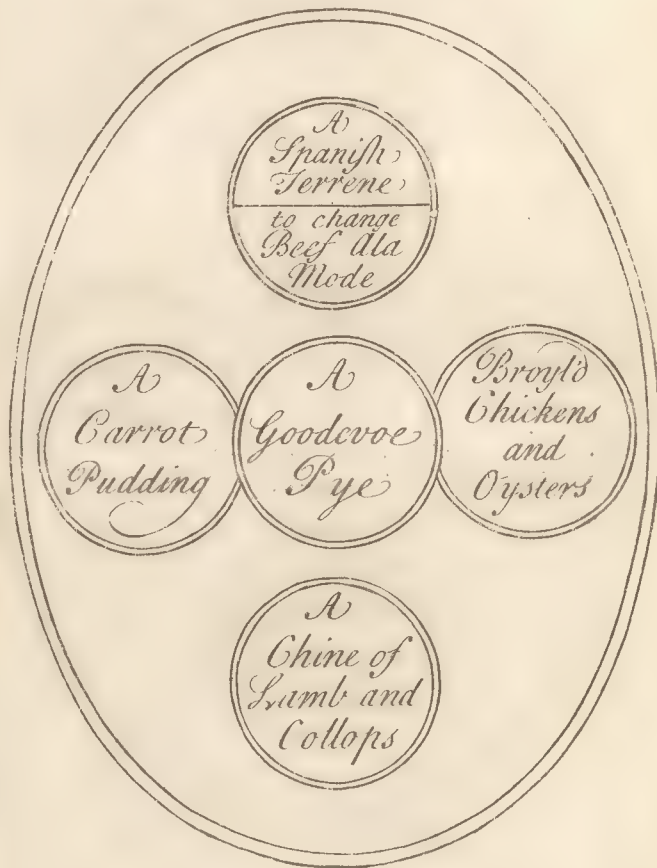 A
Spanish
Terrene
to change
Beef Ala
Mode
A
Carrot
Pudding
A
Goodevoe
Pye
Broyl'd
Chickens
and
Oysters
A
Chine of
Lamb and
Collops